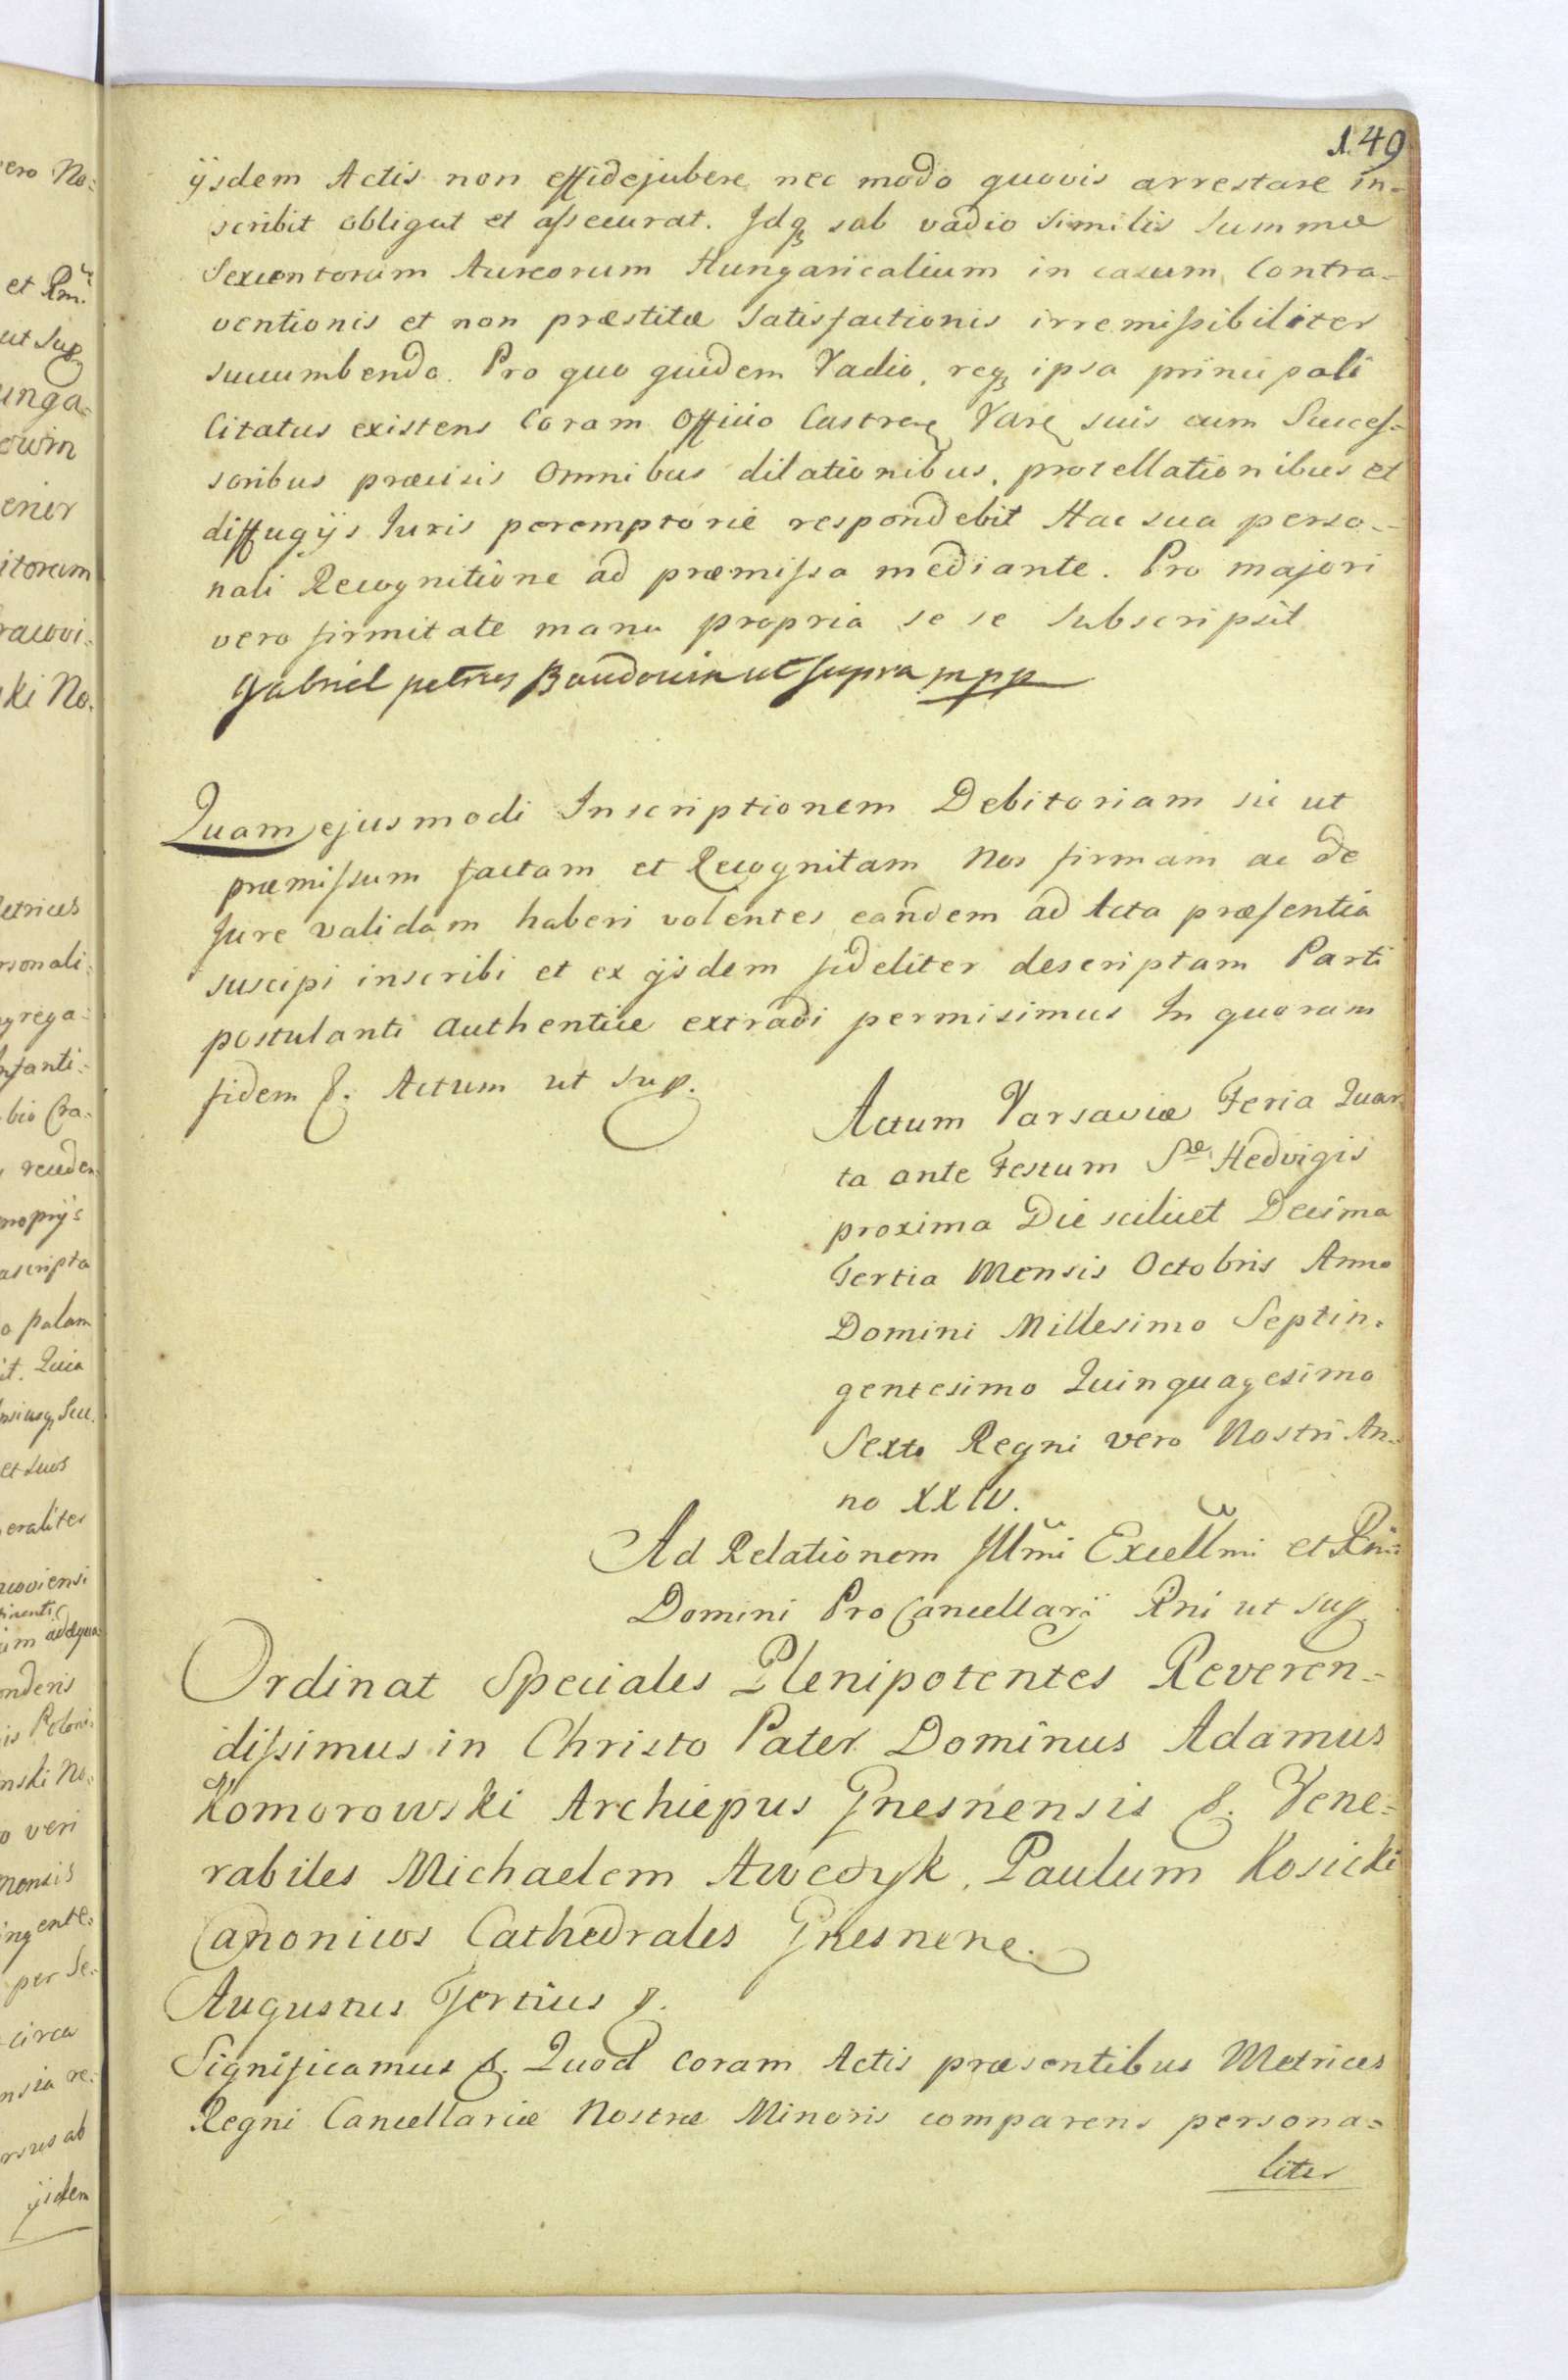 149
ijsdem Actis non effidejubere nec modo quovis arrestare in-
scribit obligat et assecurat. Idq sub vadio similis summæ
Sexcentorum Aureorum Hungaricalium in casum Contra-
ventionis et non præstitæ satisfactionis irremissibiliter
succumbendo. Pro quo quidem Vadio, req ipsa principali
Citatus existens Coram Officio Castren Varẽ suis cum Succes-
soribus præcisis omnibus dilationibus, protellationibus et
diffugijs Iuris peremptorie respondebit Hac sua perso-
nali Recognitione ad præmissa mediante. Pro majori
vero firmitate manu propria se se subscripsit
Gabriel petrus Baudouin ut supra mpp
Quam ejusmodi Inscriptionem Debitoriam sic ut
præmissum factam et Recognitam Nos firmam ac de
Jure validam haberi volentes eandem ad Acta præsentia
suscipi inscribi et ex ijsdem fideliter descriptam Parti
postulanti authentice extradi permisimus In quorum
fidem &. Actum ut sup.
Actum Varsaviæ Feria Quar-
ta ante Festum Sæ Hedvigis
proxima Die scilicet Decima
Tertia Mensis Octobris Anno
Domini Millesimo Septin-
gentesimo Quinquagesimo
Sexto Regni vero Nostri An-
no XXIV.
Ad Relationem Illmi Excellmi et Rmi
Domini ProCancellarij Rni ut sup
Ordinat Speciales Plenipotentes Reveren-
dissimus in Christo Pater Dominus Adamus
Komorowski Archiepus Gnesnensis &. Vene-
rabiles Michaelem Awedyk, Paulum Kosicki
Canonicos Cathedrales Gnesnene.
Augustus Tertius &.
Significamus &. Quod coram Actis præsentibus Metrices
Regni Cancellariæ Nostræ Minoris comparens persona-
liter